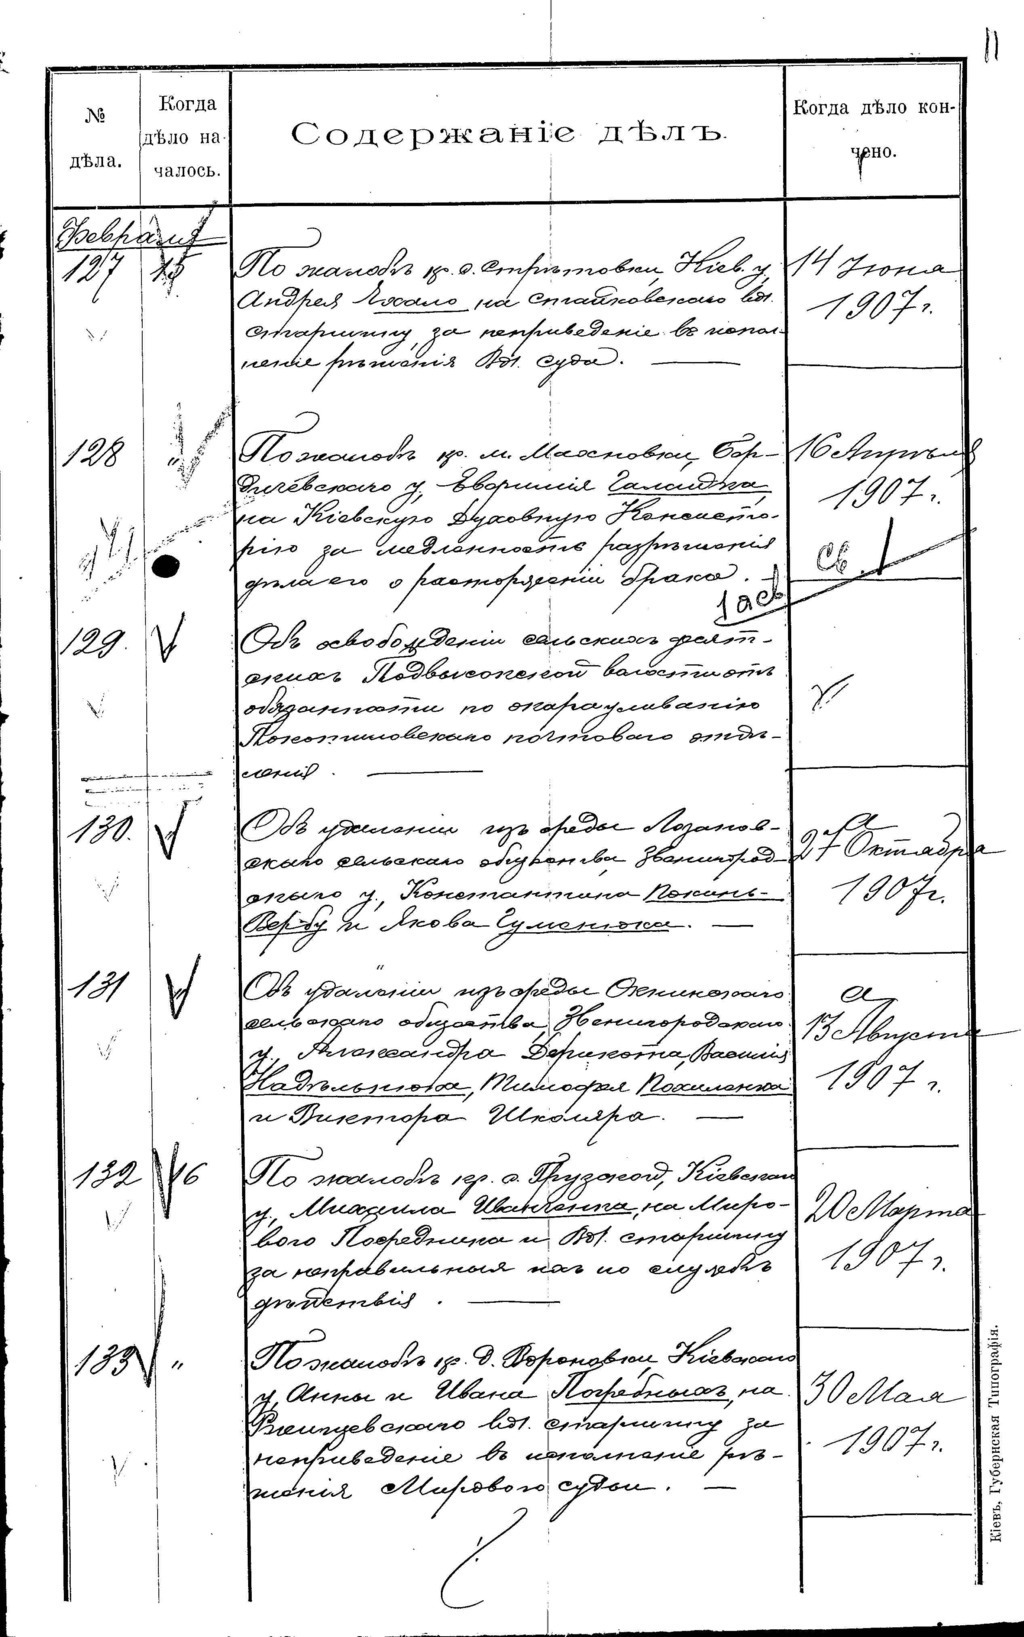 11
№ дѣла.
Когда дѣло началось.
Содержаніе дѣлъ.
Когда дѣло кончено.
Февраля
127
15
По жалобѣ кр. с. Стрѣтовки, Кіев. у.
Андрея на Стайковскаго вол.
старшину, за неприведеніе въ испол-
неніе рѣшенія Вол. суда. —
14 Іюня
1907 г.
128
"
По жалобѣ кр. м. Махновки, Бер-
дичевскаго у, Евфимія Галайды
на Кіевскую Духовную Консисто-
рію за медленность разрѣшенія
дѣла его о расторженіи брака. —
16 Апрѣля
1907 г.
Св. 1
129.
Объ освобожденіи сельскихъ десят-
скихъ Подвысоцкой волости отъ
обязанности по окарауливанію
почтоваго отдѣ-
ленія. —
130.
Объ удаленіи изъ среды Лозанов-
скаго сельскаго общества, Звенигород-
скаго у., Константина Покинь-
Вербу и Якова Гуменюка. —
27 Октября
1907 г.
131
Объ удаленіи изъ среды
сельскаго общества, Звенигородскаго
у., Александра Василія
Надѣльнюка, Тимофея Похиленка
и Виктора Школяра. —
13 Августа
1907 г.
132
16
По жалобѣ кр. с. Грузской, Кіевскаго
у., Михаила Иванченка, на Миро-
вого Посредника и Вол. старшину
за неправильныя ихъ по службѣ
дѣйствія. —
20 Марта
1907 г.
133
"
По жалобѣ кр. д. Вороновки, Кіевскаго
у, Анны и Ивана Погребныхъ, на
вол. старшину за
неприведеніе въ исполненіе рѣ-
шенія Мирового судьи. —
30 Мая
1907 г.
Кіевъ, Губернская Типографія.